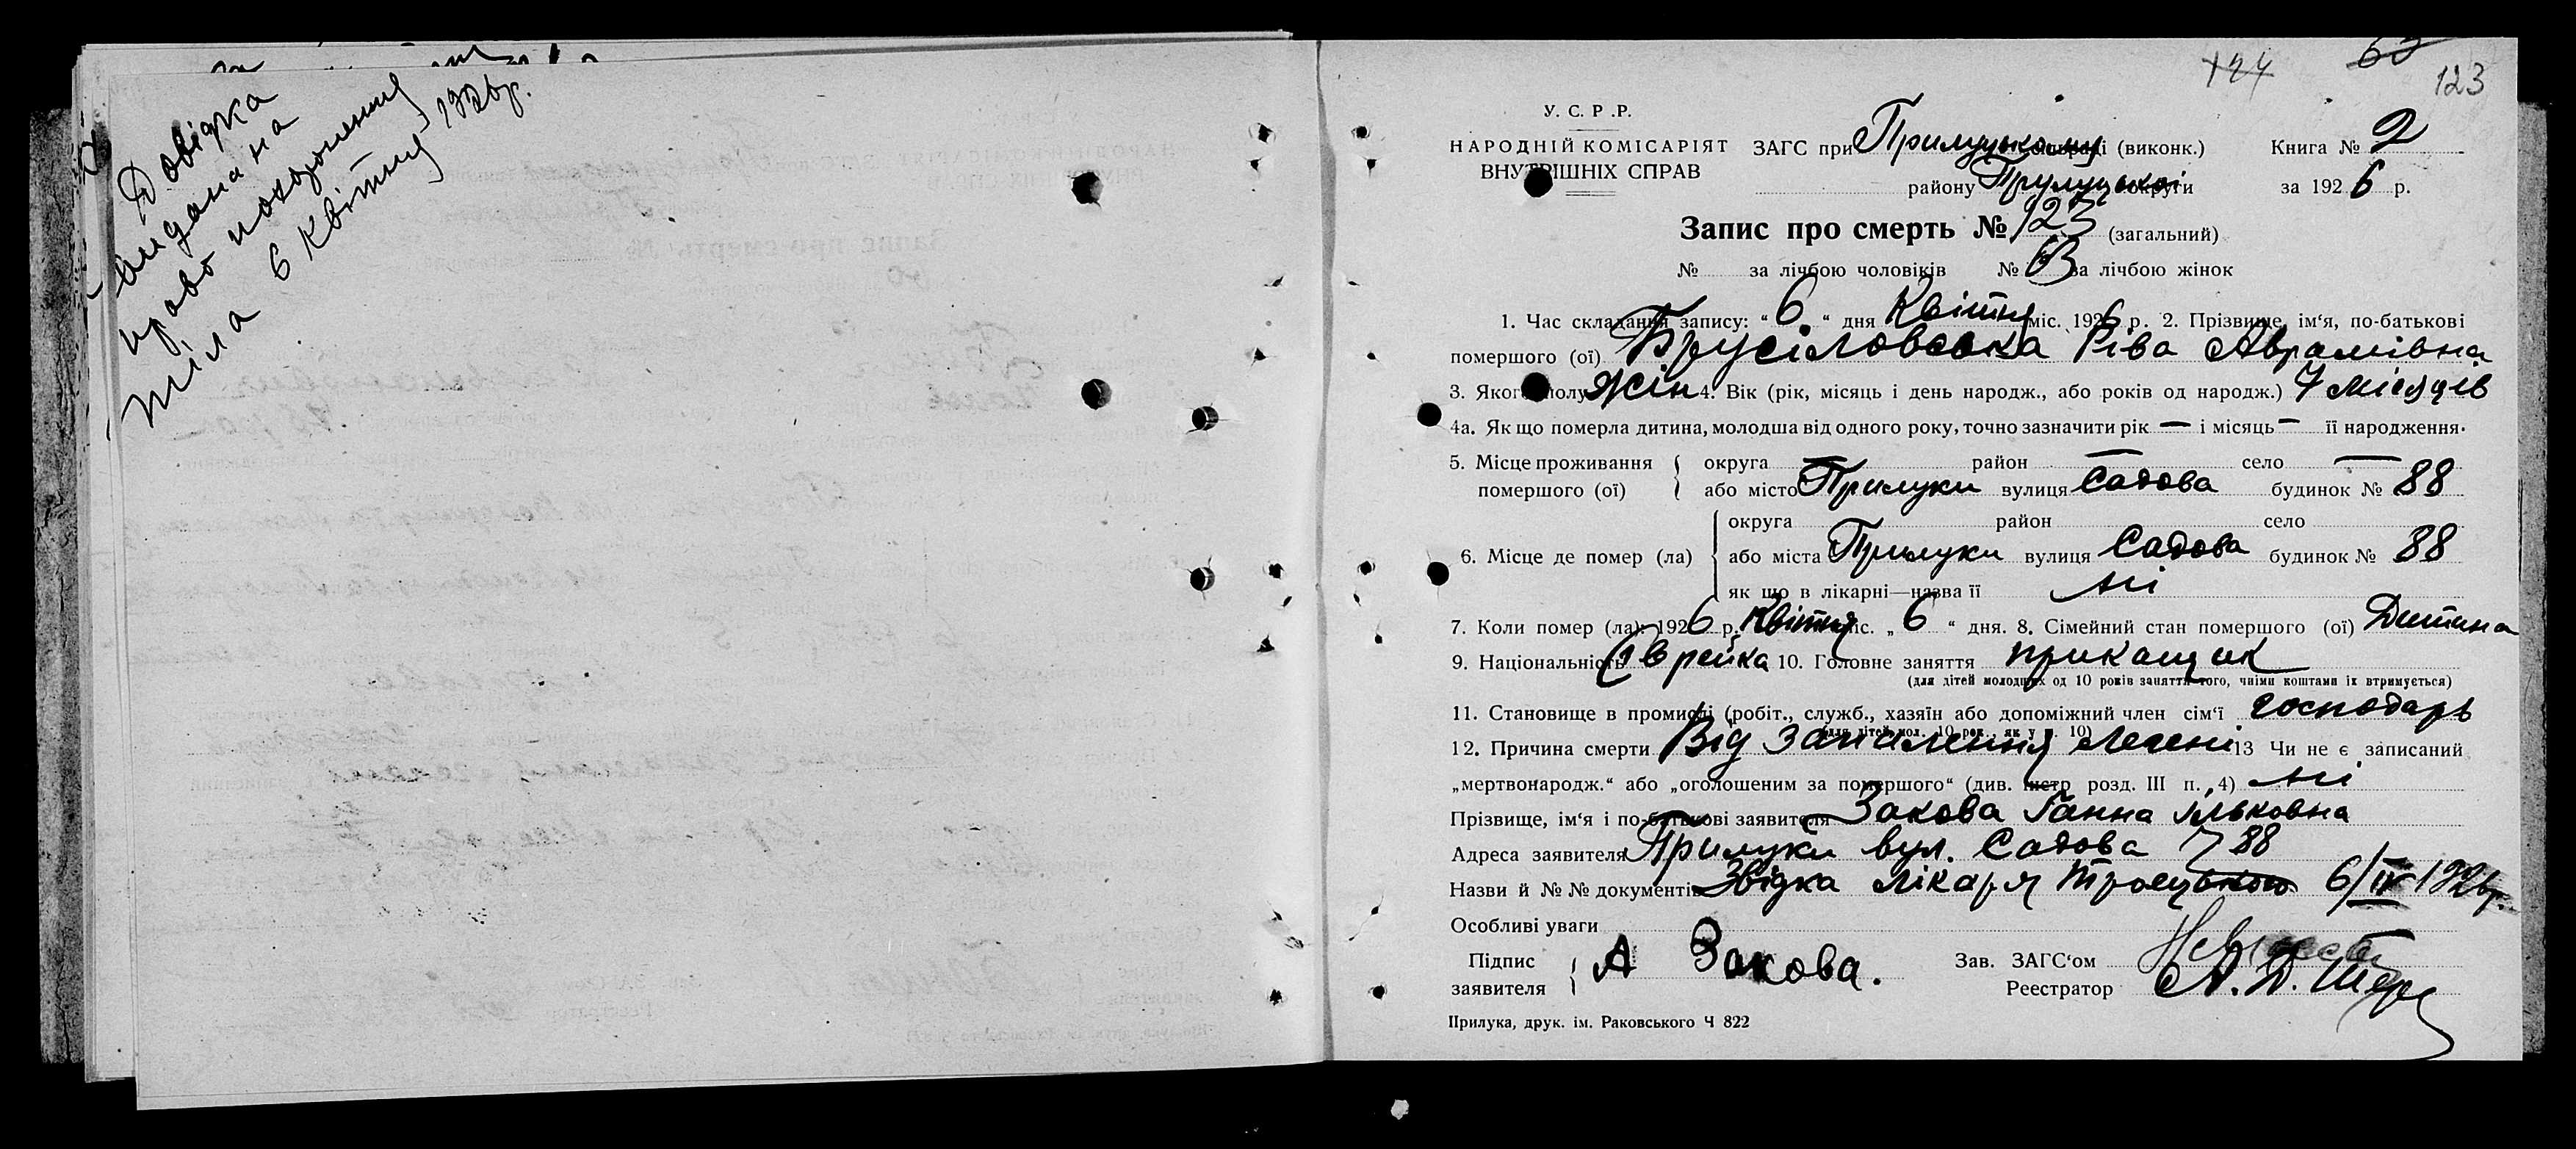 Довідка
видана на
право похоронення
тіла 6 Квітня 1926р.
124 63 123
У. С. Р. Р.
НАРОДНІЙ КОМІСАРІЯТ
ВНУТРІШНІХ СПРАВ
ЗАГС при Прилуцькому (виконк.) Книга № 2
району Прулуцької округи за 1926 р.
Запис про смерть № 123 (загальний)
№ за лічбою чоловіків № 63 за лічбою жінок
1. Час складання запису: “ 6 “ дня Квітня міс. 1926 р. 2. Прізвище, ім‘я, по-батькові
помершого (ої) Брусіловська Ріва Аврамівна
3. Якого полу жін 4. Вік (рік, місяць і день народж., або років од народж.) 7 місяців
4а. Як що померла дитина, молодша від одного року, точно зазначити рік — і місяць — її народження.
5. Місце проживання помершого (ої) { округа — район — село —
або місто Прилуки вулиця Садова будинок № 88
6. Місце де помер (ла) { округа район село
або міста Прилуки вулиця Садова будинок № 88
як що в лікарні—назва її ні
7. Коли помер (ла): 1926 р. Квітня міс. „ 6 “ дня. 8. Сімейний стан помершого (ої) Дитина
9. Національність Єврейка 10. Головне заняття прикащик
(для дітей молодших од 10 років заняття того, чиїми коштами їх втримується)
11. Становище в промислі (робіт., служб., хазяїн або допоміжний член сім‘ї господарь
(для дітей мол. 10 рок., як у п. 10)
12. Причина смерти Від запалення легені 13 Чи не є записаний
„мертвонародж.“ або „оголошеним за помершого“ (див. інстр розд. III п., 4) ні
Прізвище, ім‘я і по-батькові заявителя Закова Ганна Ільковна
Адреса заявителя Прилуки вул. Садова 88
Назви й №№ документів Звідка лікаря Троецького 6/IV 1926р.
Особливі уваги
Підпис заявителя { А Закова.
Зав. ЗАГС‘ом
Реестратор
Прилука, друк. ім. Раковського Ч 822